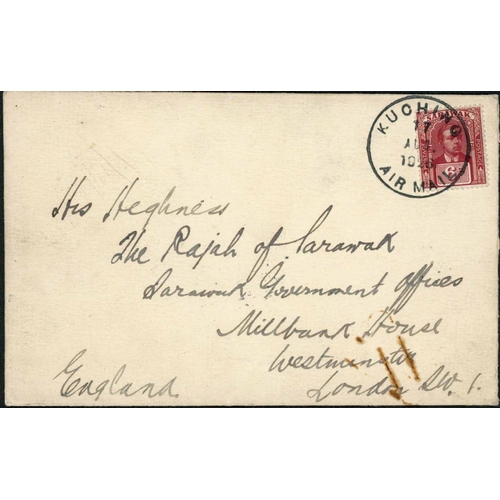 KUCHING
17
AUG
AIR MAIL
SARAWAK
His Heghness
The Rajah of Sarawak
Sarawak Government Offices
Millbank House
Westminster
London S.W. 1.
England